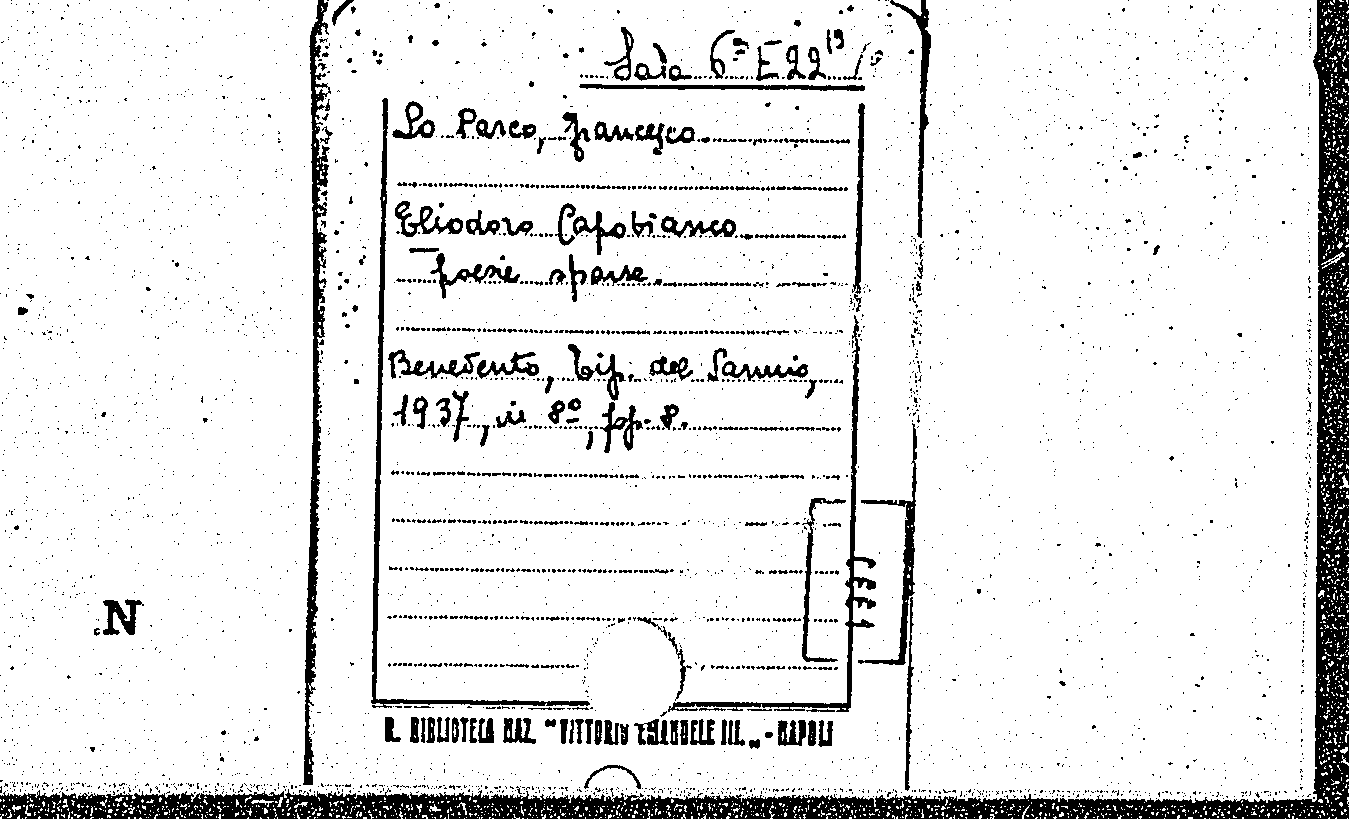 Sala 6ª E 22 19
Lo Parco, Francesco.
Eliodoro Capobianco.
— poesie sparse.
Benevento, Tip. del Sannio,
1937, in 8º, pp. 8.
N
R. BIBLIOTECA NAZ. "VITTORIO EMANUELE III. „ - NAPOLI